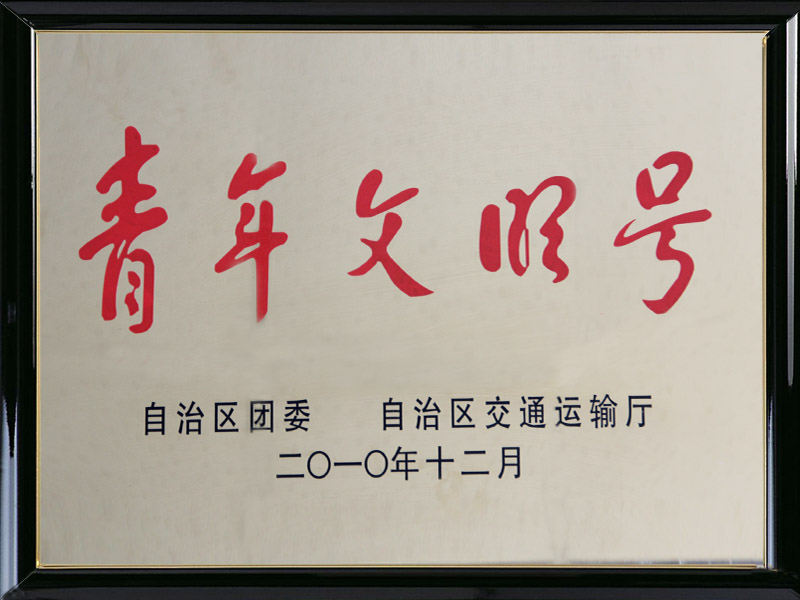 青年文明号
自治区团委 自治区交通运输厅
二〇一〇年十二月